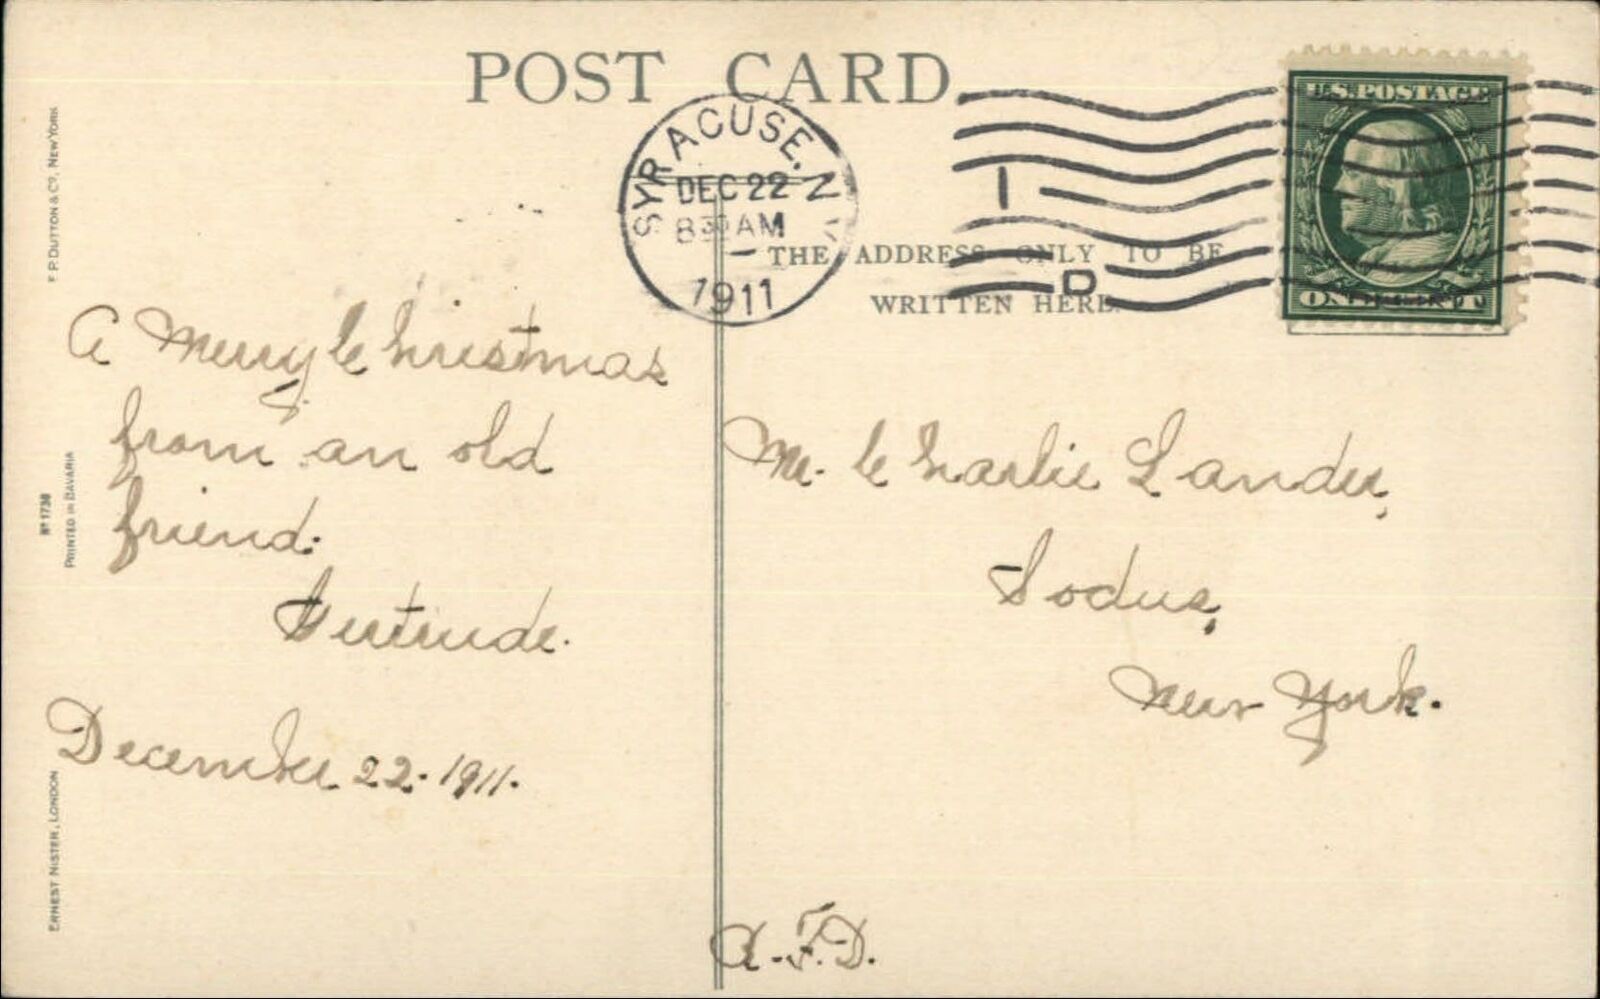 POST CARD
SYRACUSE, N
DEC 22
8 30 AM
1911
1
D
U.S. POSTAGE
ONE CENT
THE ADDRESS ONLY TO BE
WRITTEN HERE.
A Merry Christmas
from an old
friend.
Gertrude.
December 22. 1911.
Mr. Charlie Lander,
Sodus,
New York.
R.F.D.
F. P. DUTTON & CO, NEW YORK
No 1738
PRINTED IN BAVARIA
ERNEST NISTER, LONDON